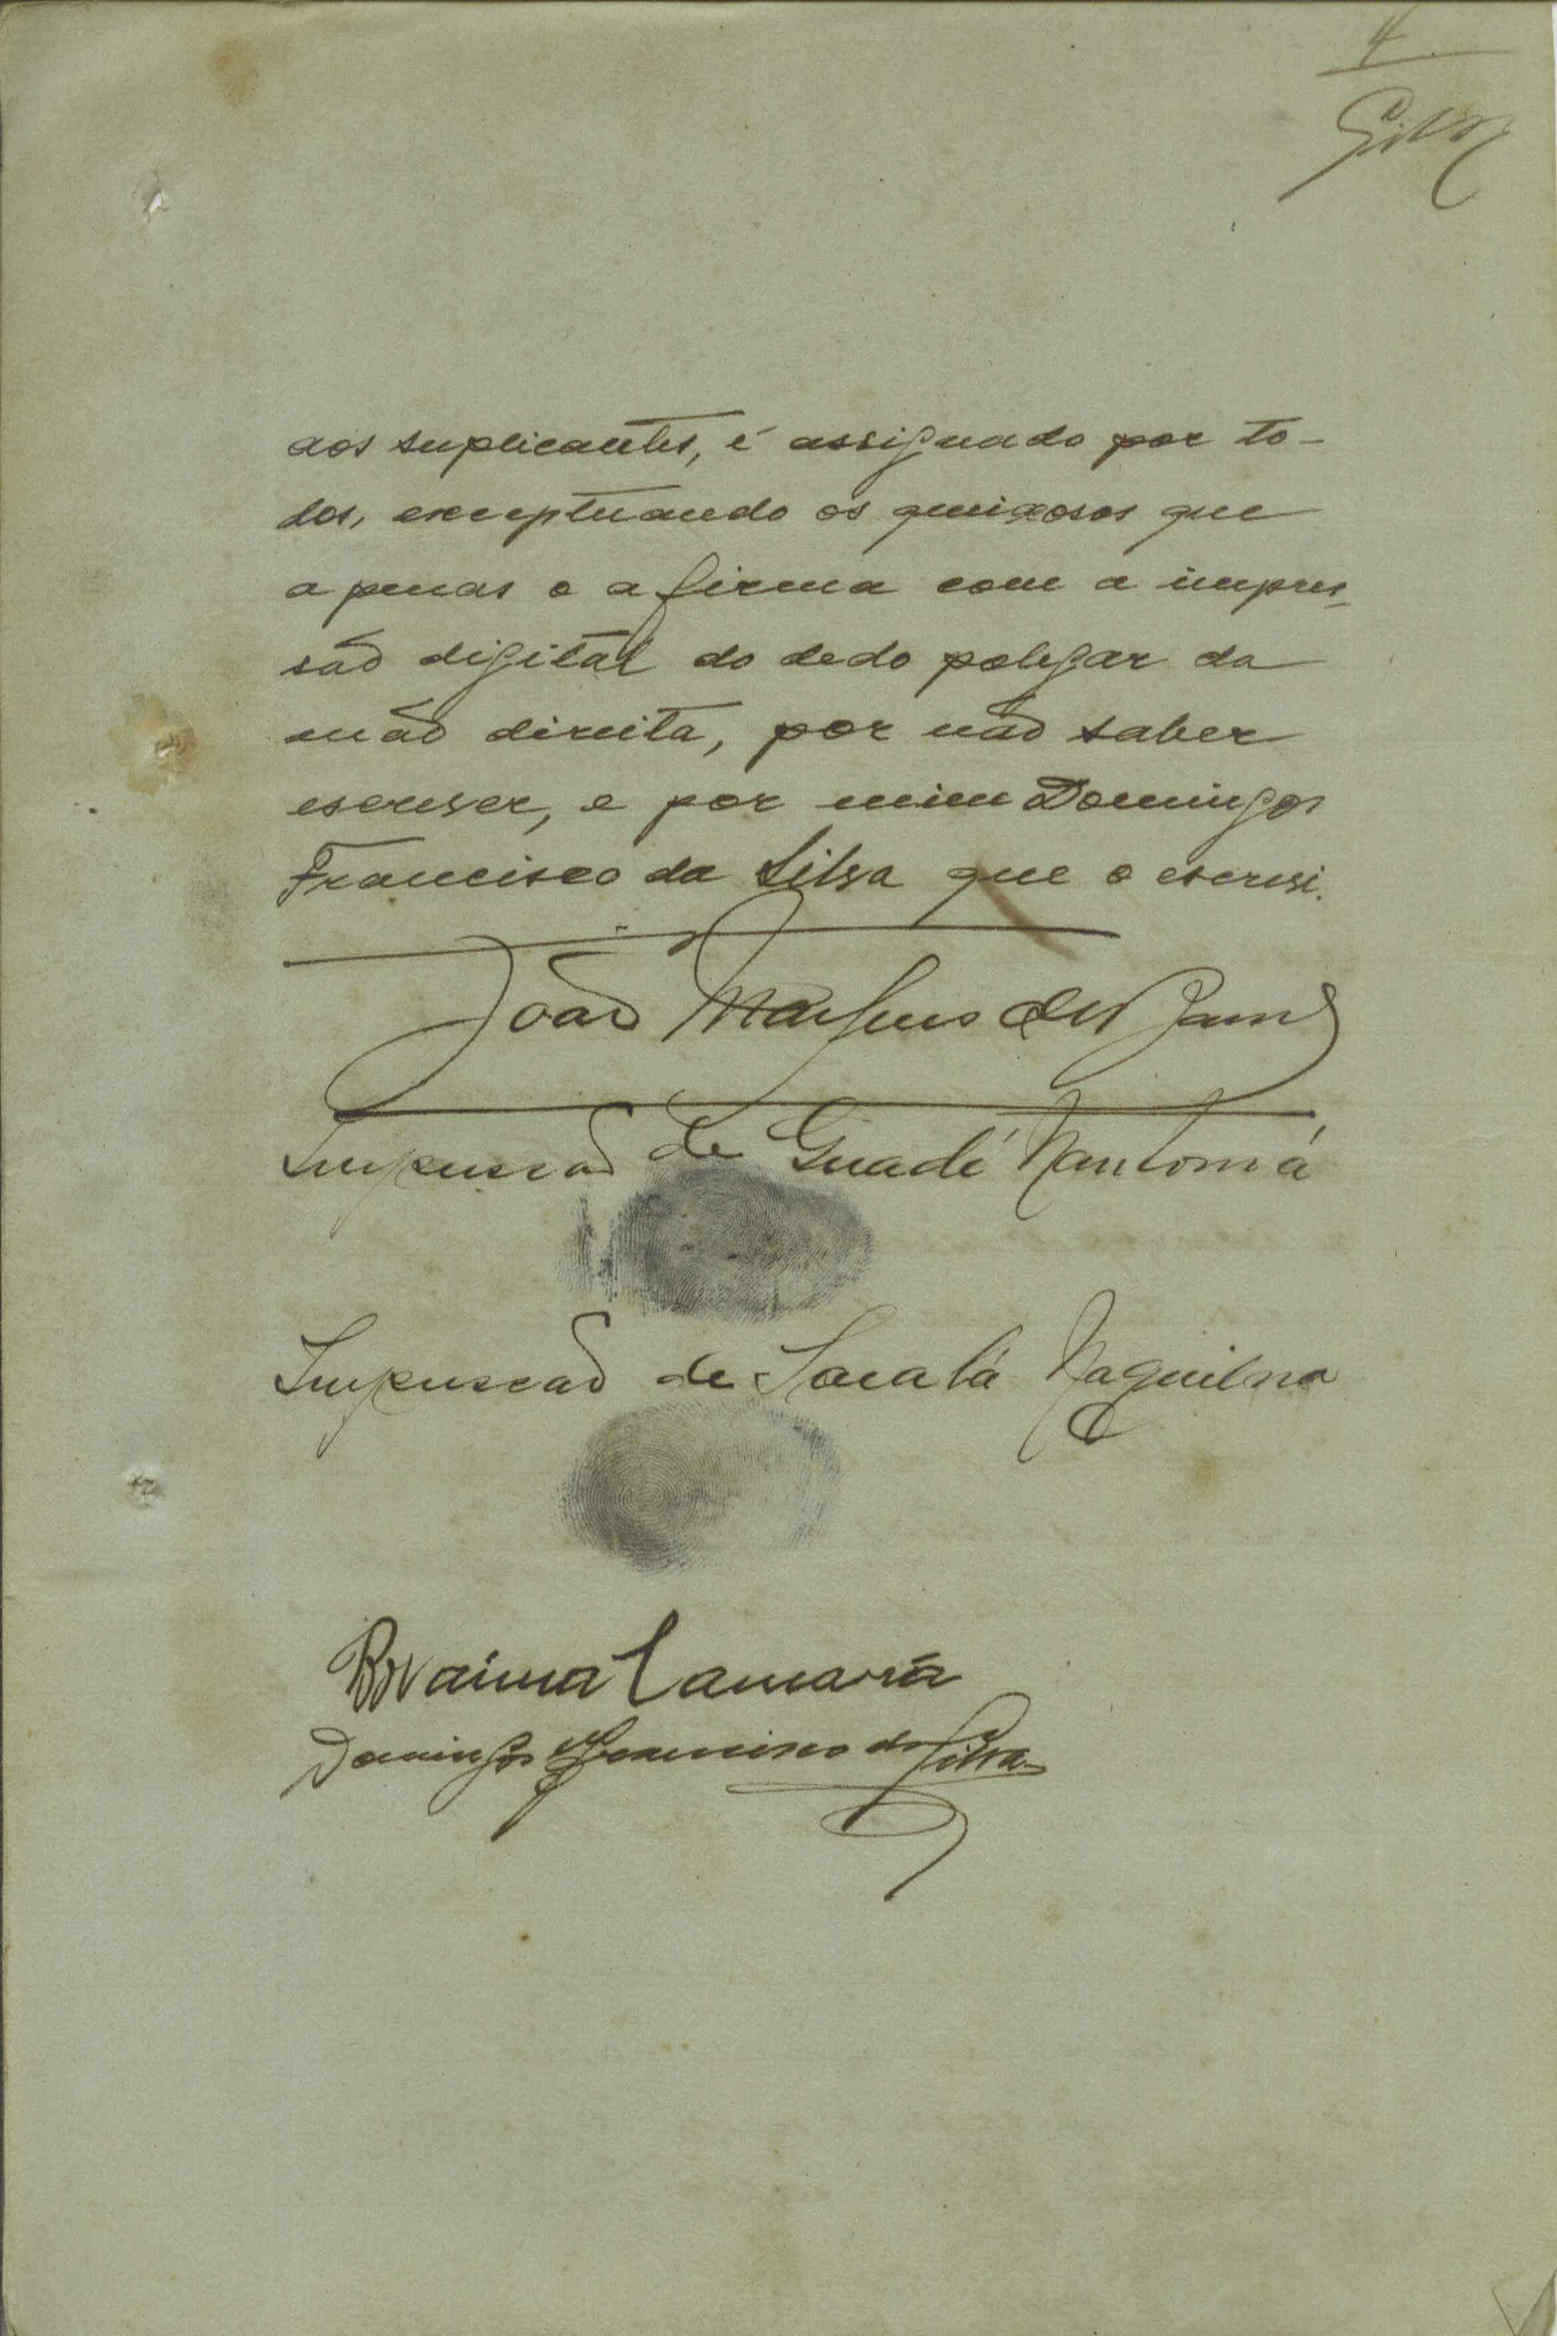 4
Silva
aos suplicantes, é assignado por to-
dos, exceptuando os queixosos que
apenas o afirma com a impres-
são digital do dedo polegar da
mão direita, por não saber
escrever, e por mim Domingos
Francisco da Silva que o escrevi.
João Marques de
Impressão de Guadé Nantomá
Impressão de Sacalá Naquilna
Braima Camará
Domingos Francisco da Silva